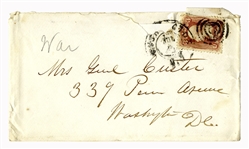 War
Mrs Genl Custer
337 Penn Avenue
Washgtn
D.C.